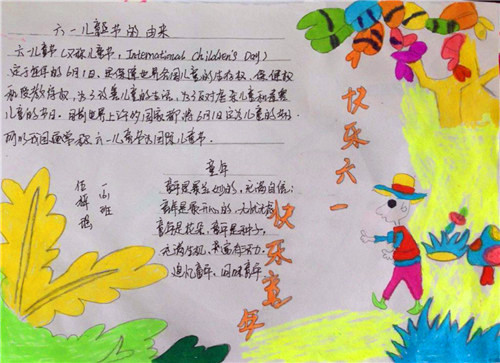 六一儿童节的由来
六一儿童节（又称儿童节，International Children's Day）
定于每年的6月1日。为保障世界各国儿童的生存权、保健权
和受教育权，为了改善儿童的生活，为了反对虐杀儿童和毒害
儿童的节日。目前世界上许多国家都将6月1日定为儿童的节日
同时我国通常称六一儿童节为国际儿童节。
童年
童年是最美妙的，充满自信；
童年是最开心的，无忧无虑
童年是花朵，童年是种子，
充满生机，来富有活力。
追忆童年，回味童年
一
班
快乐六一
快乐童年